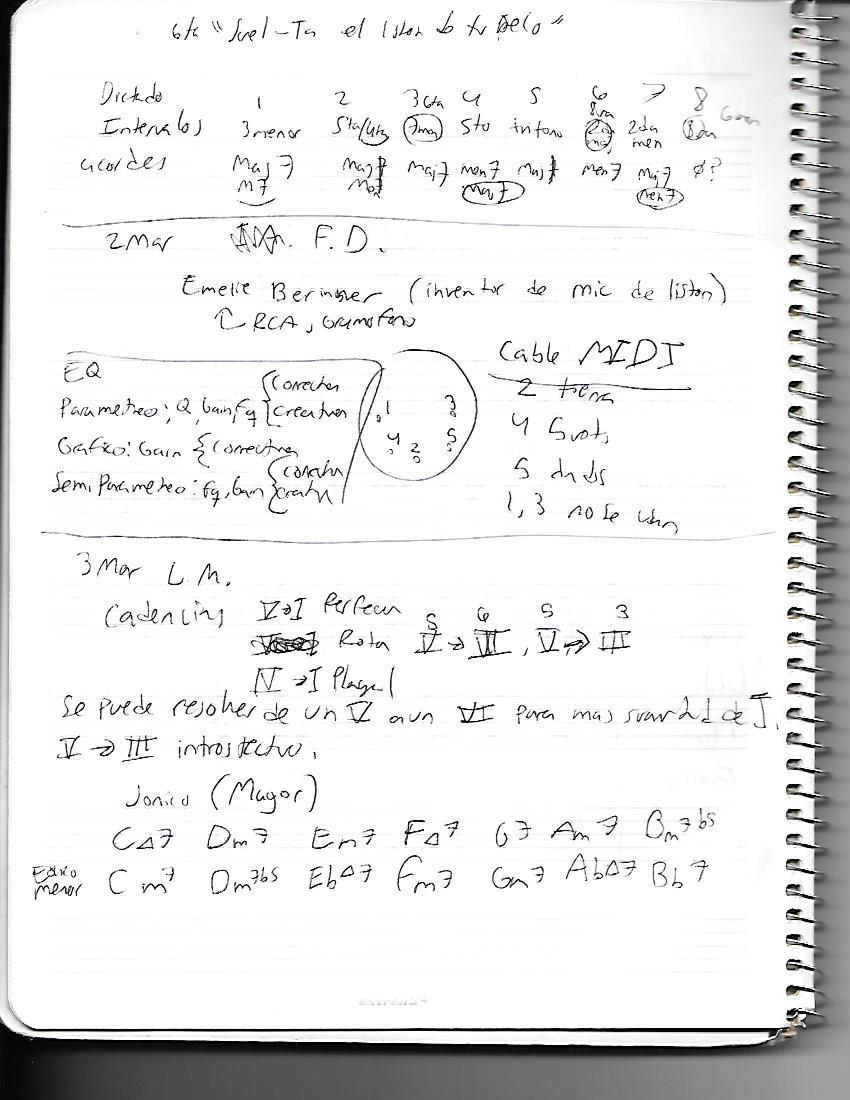 6ta "Suel-Ta el liston de tu pelo"
Dictado 1 2 3 6ta 4 5 6 7 8
8va
Intervalos 3menor 5ta/4ta 7maj 5to tritono 2da maj 2da men 8va
acordes Maj7 maj7 maj7 men7 maj7 men7 maj7 ø?
m7 maj7 men7
2 Mar F.D.
Emelie Berinher (inventor de mic de liston)
RCA, Gramofono
Cable MIDI
EQ
Parametreo: Q, Gain, Fq { Correctivo
Creativo
Grafico: Gain { Correctivo
Semi Parametreo: Fq, Gain { Correctivo
Creativo
1 3
4 2 5
2 tierra
4 5 volts
5 datos
1, 3 no se usan
3 Mar L.M.
Cadencias V→I Perfecta
5 6 5 3
Rota V→VI, V→III
IV→I Plagal
Se puede resolver de un V a un VI para mas suavidad de I.
V→III introspectivo.
Jonico (Mayor)
C∆7 Dm7 Em7 F∆7 G7 Am7 Bm7b5
Eolico menor Cm7 Dm7b5 Eb∆7 Fm7 Gm7 Ab∆7 Bb7
estrella